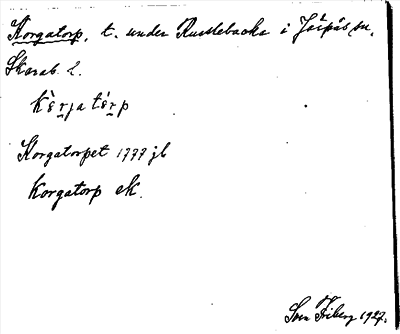 Korgatorp, t. under Russlebacka i Järpås sn,
Skarab. l.
Korgatorpet 1777 jb
Korgatorp ek.
Sven Friberg 1927.